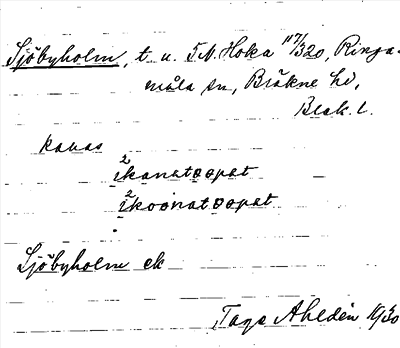 Sjöbyholm, t. u. 5 N. Hoka 117/320, Ringa-
måla sn, Bräkne hd,
Blek. l.
kallas
2
ikanatoopat
2
ikoonatoopat
Sjöbyholm ek
Tage Ahldén 1930